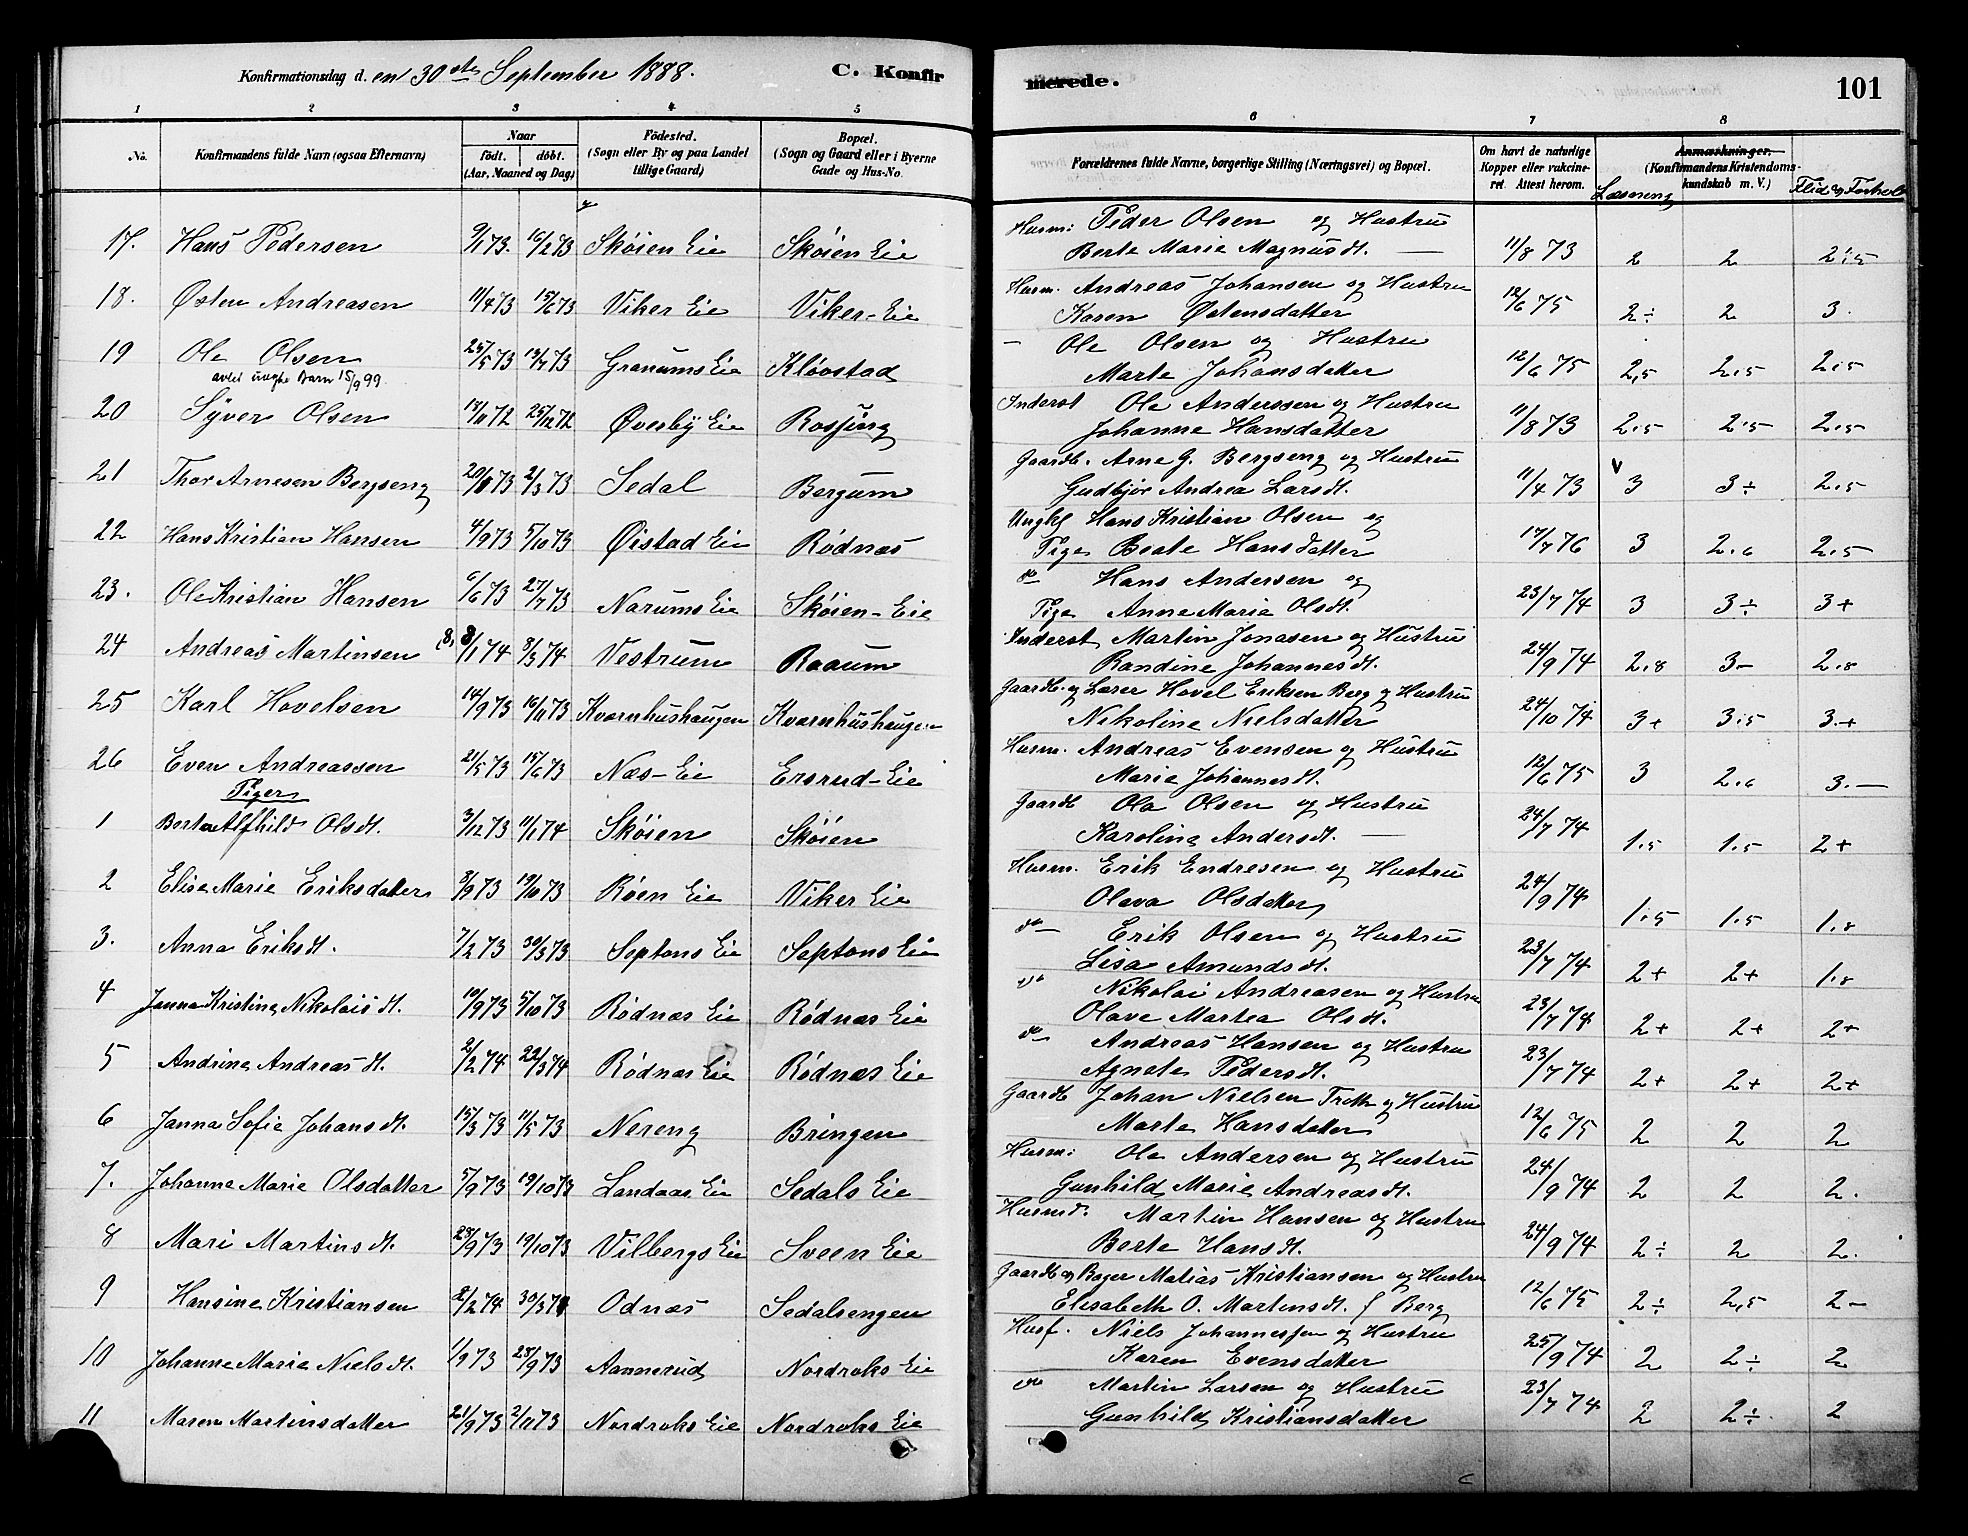 Konfirmationsdag d. en 30te September 1888. C. Konfirmerede. 101
1 2 3 4 5 6 7 8
No. Konfirmandens fulde Navn (ogsaa Efternavn) Naar födt. döbt. (Aar, Maaned og Dag) Födested. (Sogn eller By og paa Landet tillige Gaard) Bopæl. (Sogn og Gaard eller i Byerne Gade og Hus-No. Forældrenes fulde Navne, borgerlige Stilling (Næringsvei) og Bopæl. Om havt de naturlige Kopper eller vakcineret. Attest herom. Anmærkninger. (Konfirmandens Kristendomskundskab m. V.) Læsning Flid og Forhold
17. Hans Pedersen 9/1 73. 16/2 73 Skøien Eie Skøien Eie Husm: Peder Olsen og Hustru 11/8 73 2 2 2.5
Berte Marie Magnusdt. —
18. Østen Andreasen 11/4 73 15/6 73 Viker Eie Viker-Eie Husm. Andreas Johansen og Hustru 12/6 75 2÷ 2 3.
Karen Østensdatter
19 Ole Olsen 25/5 73 13/7 73 Granums Eie Kløvstad — Ole Olsen og Hustru 12/6 75 2,5 2.5 2.5
avlet uægte Barn 15/9 99. Marte Johansdatter
20 Syver Olsen 17/11 72 25/12 72 Øverby Eie Inderst Ole Anderssen og Hustru 11/8 73 2.5 2.5 2.5
Johanne Hansdatter
21 Thor Arnesen Bergseng 2/3 73 Sedal Bergum Gaardb. Arne G. Bergseng og Hustru 11/4 73 v 3 3÷ 2.5
Gudbjør Andrea Larsdt.
22 Hans Kristian Hansen 4/9 73 5/10 73 Øistad Eie Rødnæs Ungk Hans Kristian Olsen og 17/7 76 3 2.6 2.5
Pige Beate Hansdatter
23. Ole Kristian Hansen 6/6 73 27/7 73 Narums Eie Skøien-Eie do Hans Andersen og 23/7 74 3 3÷ 3+
Pige Anne Marie Olsdt.
24 Andreas Martinsen (8) 8/1 74 8/3 74 Vestrum Raaum Inderst Martin Jonasen og Hustru 24/9 74 2.8 3- 2.8
Randine Johannesdt.
25 Karl Hovelsen 14/9 73 16/11 73 Kvarnhushaugen Kvarnhushaugen Gaardb. og Lærer Hovel Eriksen Berg og Hustru 24/10 74 3+ 3.5 3.+
Nikoline Nielsdatter
26 Even Andreassen 21/5 73 15/6 73 Næs-Eie Ersrud-Eie Husm. Andreas Evensen og Hustru 12/6 75 3 2.6 3.—
Marie Johannesdt.
Piger
1 Berte Alfhild Olsdt. 3/12 73 11/1 74 Skøien Skøien Gaardb Ole Olsen og Hustru 24/7 74 1.5 1.5 2+
Karoline Andersdt. —
2 Elise Marie Eriksdatter 3/9 73 19/10 73 Røen Eie Viker Eie Husm. Erik Endresen og Hustru 24/9 74 1.5 1.5 1.8
Olava Olsdatter
3. Anna Eriksdt. 7/2 73 30/3 73 Septons Eie Septons Eie do— Erik Olsen og Hustru 23/7 74 2+ 2+ 1.8
Lisa Amundsdt.
4 Janna Kristine Nikolaisdt. 10/9 73 5/10 73 Rødnæs Eie Rødnæs Eie do Nikolai Andreasen og Hustru 23/7 74 2+ 2+ 2+
Olave Martea Olsdt.
5 Andrine Andreasdt. 2/2 74 22/3 74 Rødnæs Eie Rødnæs Eie do— Andreas Hansen og Hustru 23/7 74 2+ 2+ 2+
Agnete Pedersdt.
6 Janna Sofie Johansdt. 15/3 73 11/5 73 Nereng Bringen Gaardb Johan Nielsen og Hustru 12/6 75 2 2 2
Marte Hansdatter
7. Johanne Marie Olsdatter 5/9 73 19/10 73 Landaas Eie Sedals Eie Husm: Ole Andersen og Hustru 24/9 74 2 2 2.
Gunhild Marie Andreasdt.
8 Mari Martinsdt. 28/9 73 19/10 73 Vilbergs Eie Sveen Eie Husmd. Martin Hansen og Hustru 24/9 74 2÷ 2 2.
Berte Hansdt.
9 Hansine Kristiansen 2/2 74 30/3 74 Odnæs Sedalsengen Gaardb og Bager Matias Kristiansen og Hustru 12/6 75 2÷ 2,5 2-
Elisabeth O. Martensdt. f Berg
10 Johanne Marie Nielsdt. 1/9 73 28/9 73 Aannerud Nordraks Eie Husf. Niels Johannessen og Hustru 25/9 74 2 2÷ 2
Karen Evensdatter
11 Maren Martinsdatter 21/9 73 2/11 73 Nordraks Eie Nordraks Eie do Martin Larsen og Hustru 23/7 74 2 2÷. 2
Gunhild Kristiansdatter